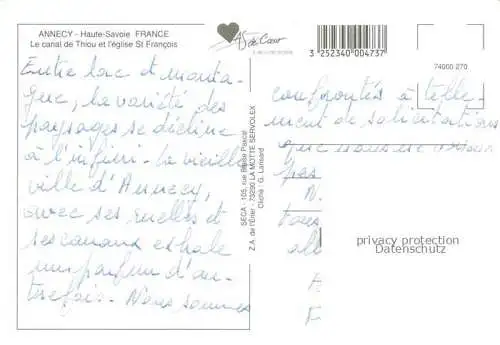 ANNECY - Haute-Savoie FRANCE
Le canal de Thiou et l'église St François
As de Cœur
3 252340 004737
74000 270
Entre lac et monta-
gne, la variété des
paysages se décline
à l'infini. La vieille
ville d'Annecy,
avec ses ruelles et
ses canaux exhale
un parfum d'au-
trefois. Nous sommes
SECA - 105, rue Blaise Pascal
Z.A. de l'Erier - 73290 LA MOTTE SERVOLEX
Cliché : G. Lansard
confrontés à telle
ment de sollicitations
que nous
pas
N.
tous
all
privacy protection
Datenschutz
F